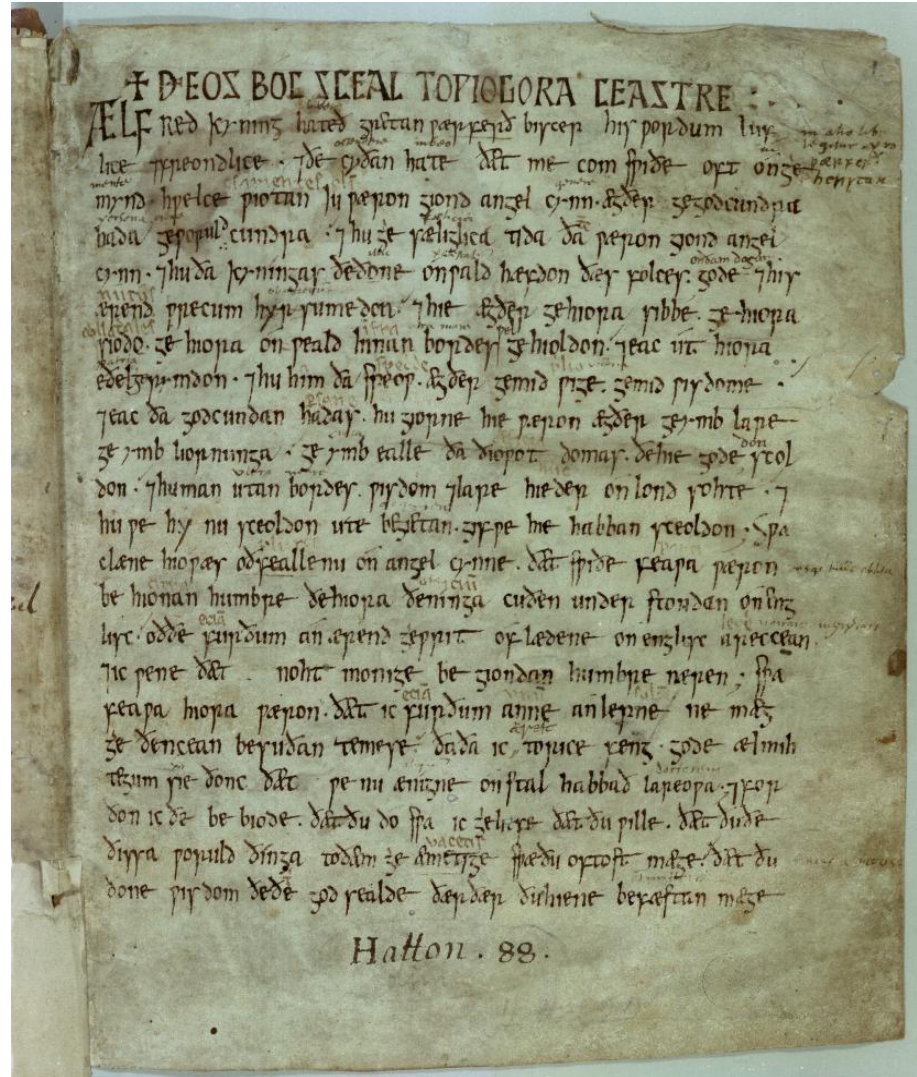 ✝ ÐEOS BOC SCEAL TO ǷIOGORA CEASTRE
ÆLFRED kyning hateð gretan ƿærferð biscep his ƿordum luf
lice ⁊ freondlice · ⁊ ðe cyðan hate ðæt me com sƿiðe oft on ge
mynd · hƿelce ƿiotan iu ƿæron giond angel cynn · ægðer ge godcundra
hada ge ƿoruldcundra · ⁊ hu gesæliglica tida ða ƿæron giond angel
cynn · ⁊ hu ða kyningas ðe ðone onƿald hæfdon ðæs folces · gode ⁊ his
ærend ƿrecum hyrsumedon · ⁊ hie ægðer ge hiora sibbe · ge hiora
siodo · ge hiora onƿeald innan bordes gehioldon · ⁊ eac ut hiora
eðel gerymdon · ⁊ hu him ða speoƿ · ægðer ge mid ƿige · ge mid ƿisdome ·
⁊ eac ða godcundan hadas · hu giorne hie ƿæron ægðer ge ymb lare
ge ymb liornunga · ge ymb ealle ða ðioƿot domas · ðe hie gode scol
don · ⁊ hu man utan bordes · ƿisdom ⁊ lare hieder on lond sohte · ⁊
hu ƿe hy nu sceoldon ute begetan · gif ƿe hie habban sceoldon · sƿa
clæne hio ƿæs oðfeallenu on angel cynne · ðæt sƿiðe feaƿa ƿæron
be hionan humbre ðe hiora ðeninga cuðen under stondan on eng
lisc · oððe furðum an ærend geƿrit of lædene on englisc areccean
⁊ ic ƿene ðæt noht monige be giondan humbre næren · sƿa
feaƿa hiora ƿæron · ðæt ic furðum anne anlepne ne mæg
ge ðencean be suðan temese · ða ða ic to rice feng · gode ælmih
tegum sie ðonc ðæt ƿe nu ænigne on stal habbað lareoƿa · ⁊ for
ðon ic ðe be biode · ðæt ðu do sƿa ic geliefe ðæt ðu ƿille · ðæt ðu ðe
ðissa ƿoruld ðinga to ðæm ge æmetige sƿæ ðu oftost mæge · ðæt ðu
ðone ƿisdom ðe ðe god sealde ðær ðær ðu hiene befæstan mæge
Hatton . 88 .